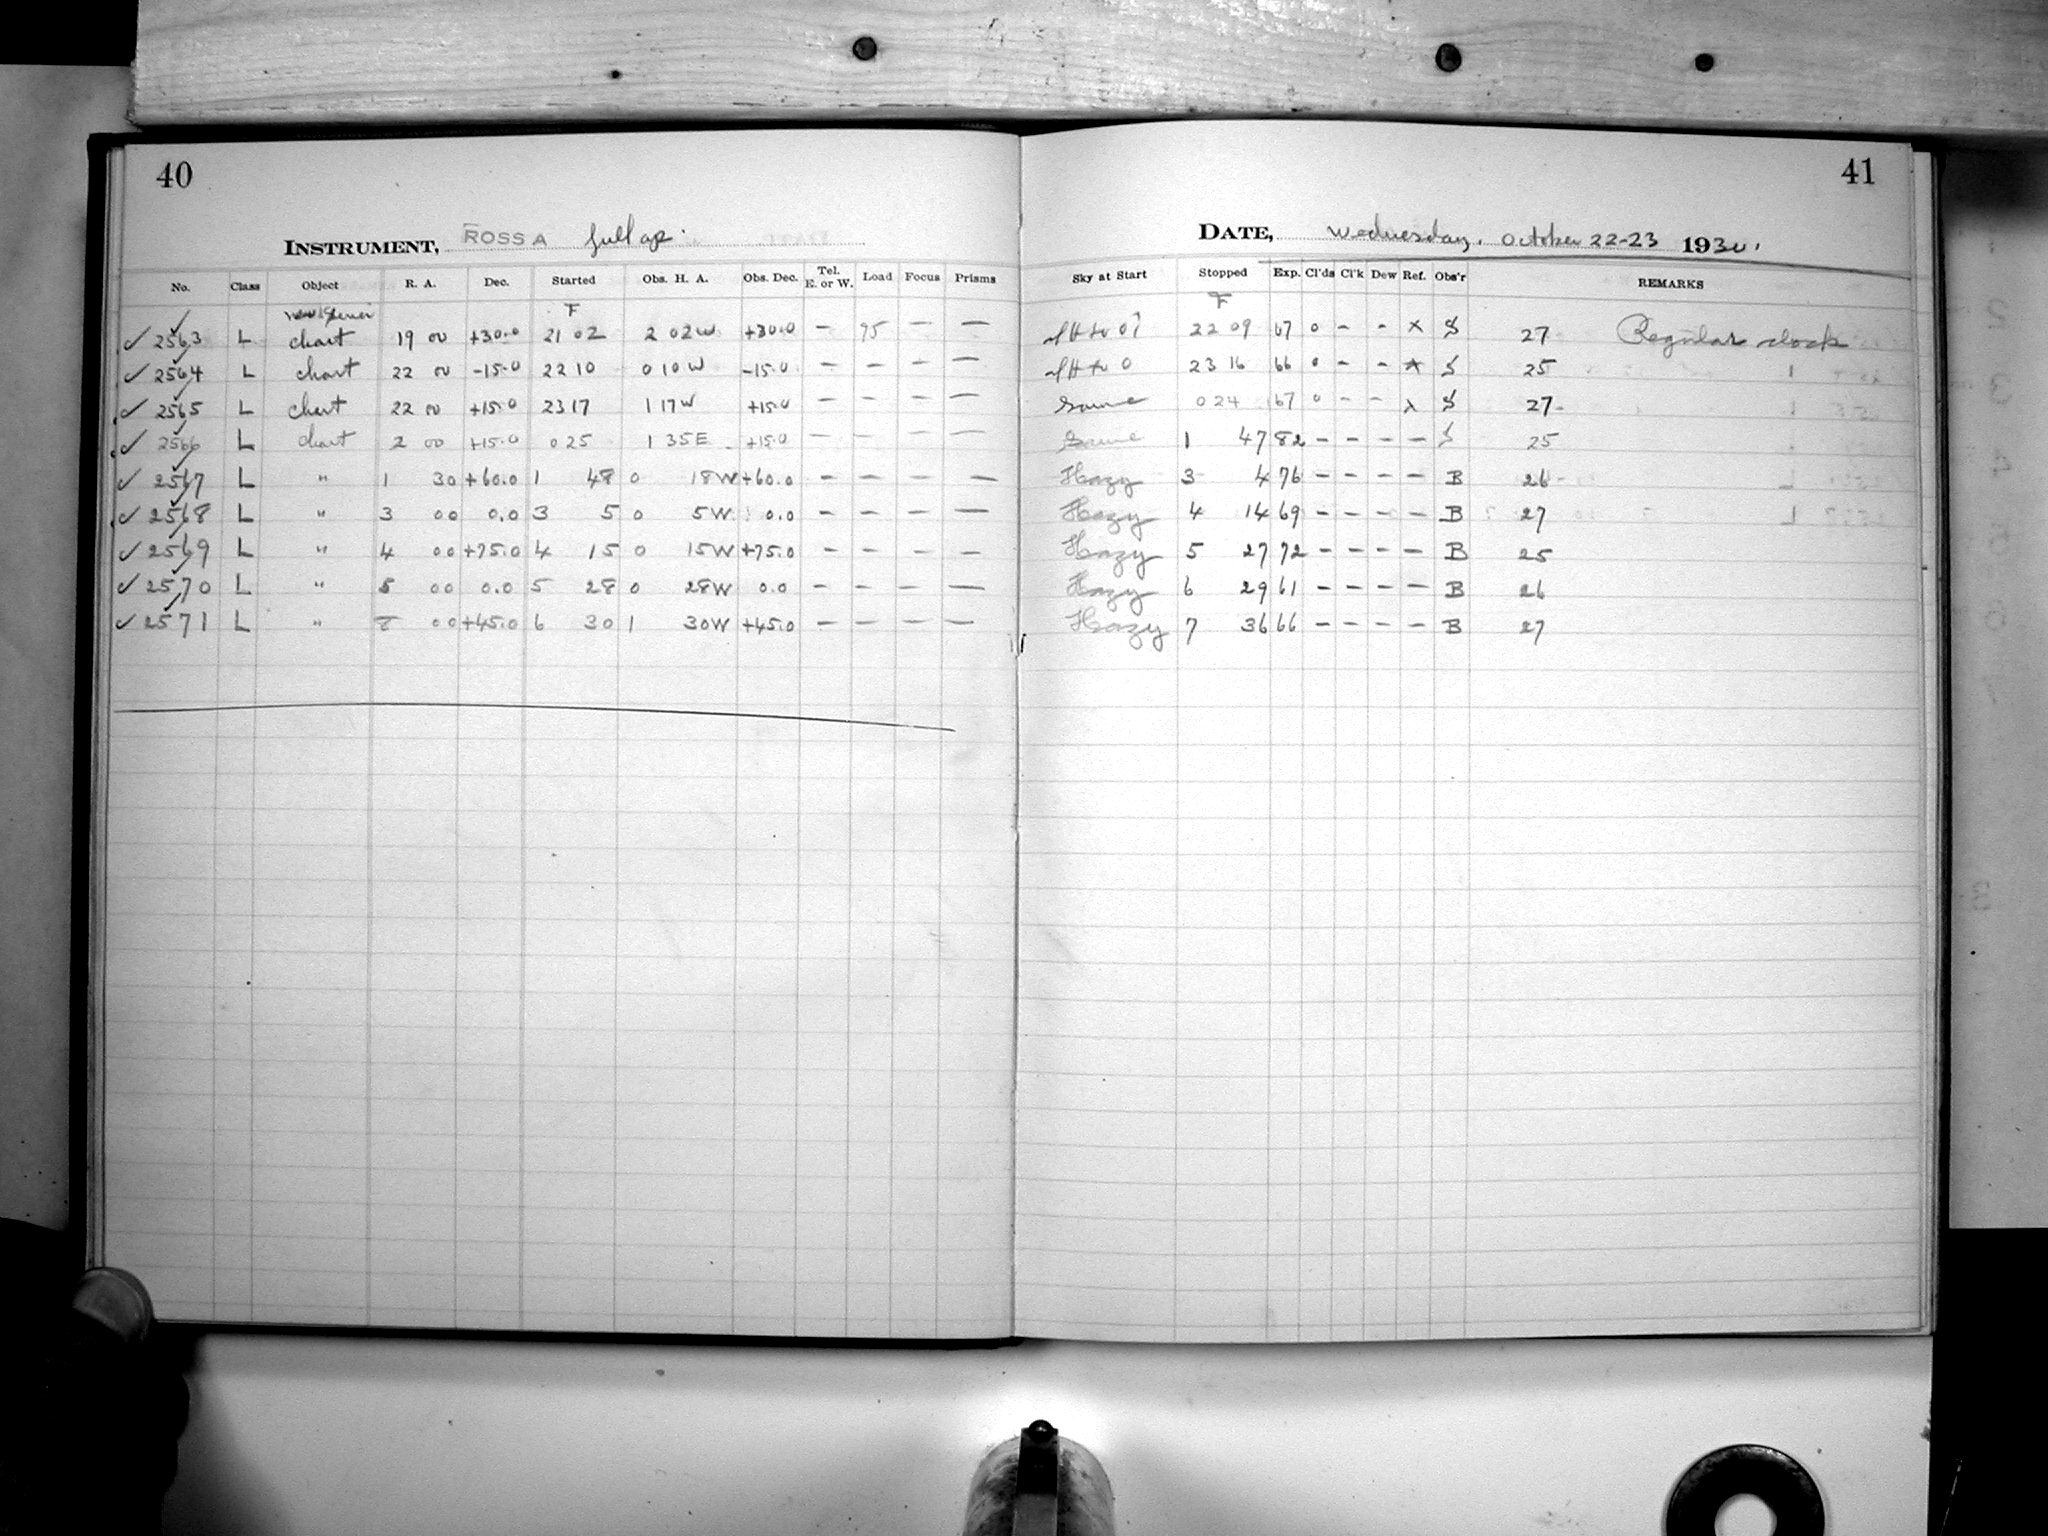 40
INSTRUMENT, ROSS A full ap.
No. Class Object R. A. Dec. Started Obs. H. A. Obs. Dec. Tel. E. or W. Load Focus Prisms
F
✓ 2563 L chart 19 00 +30.0 21 02 2 02W +30.0 – 95 – –
✓ 2564 L chart 22 00 -15.0 22 10 0 10W -15.0 – – – –
✓ 2565 L chart 22 00 +15.0 23 17 1 17W +15.0 – – – –
✓ 2566 L chart 2 00 +15.0 0 25 1 35E +15.0 – – – –
✓ 2567 L " 1 30 +60.0 1 48 0 18W +60.0 – – – –
✓ 2568 L " 3 00 0.0 3 5 0 5W 0.0 – – – –
✓ 2569 L " 4 00 +75.0 4 15 0 15W +75.0 – – – –
✓ 2570 L " 5 00 0.0 5 28 0 28W 0.0 – – – –
✓ 2571 L " 8 00 +45.0 6 30 1 30W +45.0 – – – –
41
DATE, Wednesday, October 22-23 1930.
Sky at Start Stopped Exp. Cl'ds Cl'k Dew Ref. Obs'r REMARKS
F
22 09 67 0 – – x S 27 Regular clock
23 16 66 0 – – x S 25
Same 0 24 67 0 – – x S 27
Same 1 47 82 – – – – S 25
Hazy 3 4 76 – – – – B 26
Hazy 4 14 69 – – – – B 27
Hazy 5 27 72 – – – – B 25
Hazy 6 29 61 – – – – B 26
Hazy 7 36 66 – – – – B 27